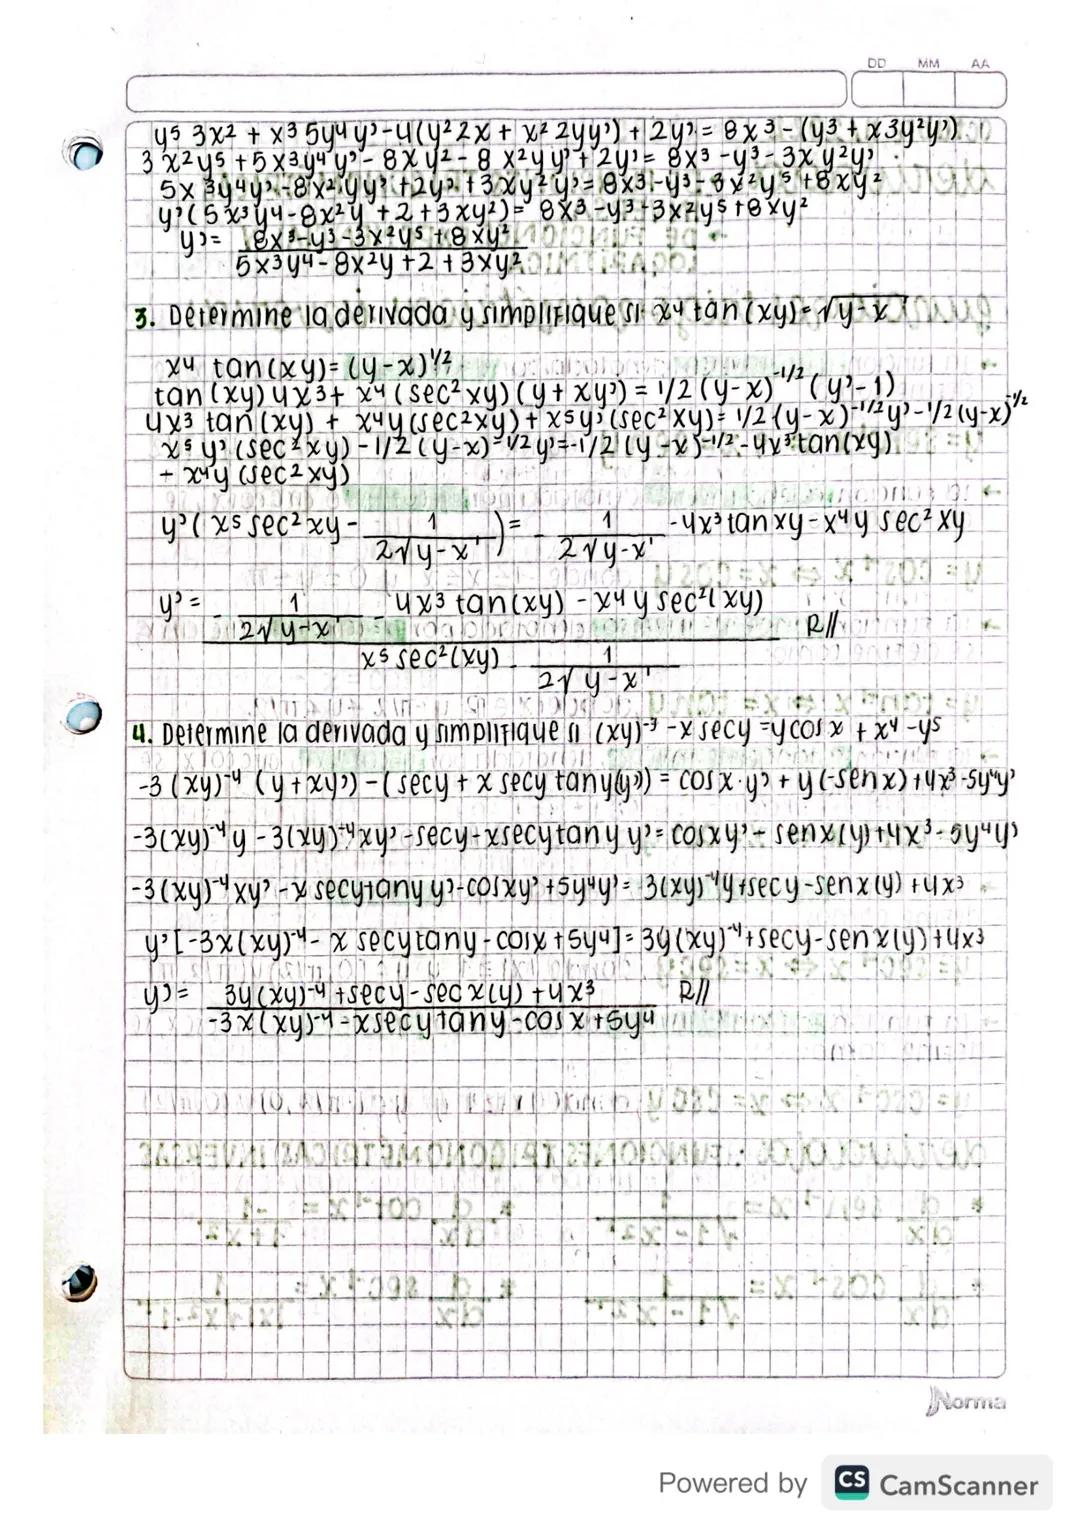 DD MM AA
y⁵ 3x² + x³ 5y⁴ y' - 4(y² 2x + x² 2yy') + 2y' = 8x³ - (y³ + x3y²y')
3x²y⁵ + 5x³y⁴y' - 8xy² - 8x²yy' + 2y' = 8x³ - y³ - 3xy²y'
5x³y⁴y' - 8x²yy' + 2y' + 3xy²y' = 8x³ - y³ - 3x²y⁵ + 8xy²
y'(5x³y⁴ - 8x²y + 2 + 3xy²) = 8x³ - y³ + 3x²y⁵ + 8xy²
y' = 8x³ - y³ - 3x²y⁵ + 8xy²
5x³y⁴ - 8x²y + 2 + 3xy²
3. Determine la derivada y simplifique si x⁴ tan(xy) = √y-x
x⁴ tan(xy) = (y-x)^1/2
tan(xy) 4x³ + x⁴ (sec²xy) (y + xy') = 1/2 (y-x)^-1/2 (y'-1)
4x³ tan(xy) + x⁴y (sec²xy) + x⁵y' (sec²xy) = 1/2 (y-x)^-1/2 y' - 1/2 (y-x)^-1/2
x⁵ y' (sec²xy) - 1/2 (y-x)^-1/2 y' = -1/2 (y-x)^-1/2 - 4x³ tan(xy)
+ x⁴y (sec²xy)
y' ( x⁵ sec² xy - 1 ) = - 1 - 4x³ tan xy - x⁴y sec² xy
2√y-x 2√y-x
y' = - 1 - 4x³ tan(xy) - x⁴ y sec²(xy)
2√y-x R//
x⁵ sec²(xy) - 1
2√y-x
4. Determine la derivada y simplifique si (xy)⁻³ - x secy = y cos x + x⁴ - y⁵
-3(xy)⁻⁴ (y + xy') - (secy + x secy tany(y')) = cosx · y' + y(-senx) + 4x³ - 5y⁴y'
-3(xy)⁻⁴y - 3(xy)⁻⁴xy' - secy - xsecytany y' = cosxy' - senx(y) + 4x³ - 5y⁴y'
-3(xy)⁻⁴xy' - x secytany y' - cosxy' + 5y⁴y' = 3(xy)⁻⁴y + secy - senx(y) + 4x³
y' [-3x(xy)⁻⁴ - x secytany - cosx + 5y⁴] = 3y(xy)⁻⁴ + secy - senx(y) + 4x³
y' = 3y(xy)⁻⁴ + secy - sec x(y) + 4x³ R//
-3x(xy)⁻⁴ - xsecytany - cosx + 5y⁴
Norma
Powered by CS CamScanner